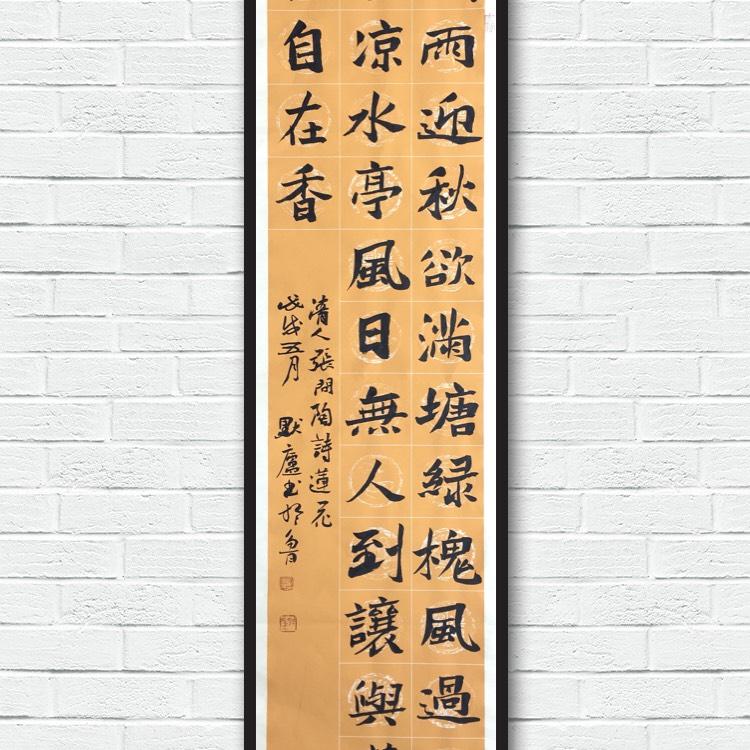 雨迎秋欲满塘绿槐風過
凉水亭風日無人到讓與
自在香
清人張問陶詩蓮花
戊戌五月 默廬书於魯